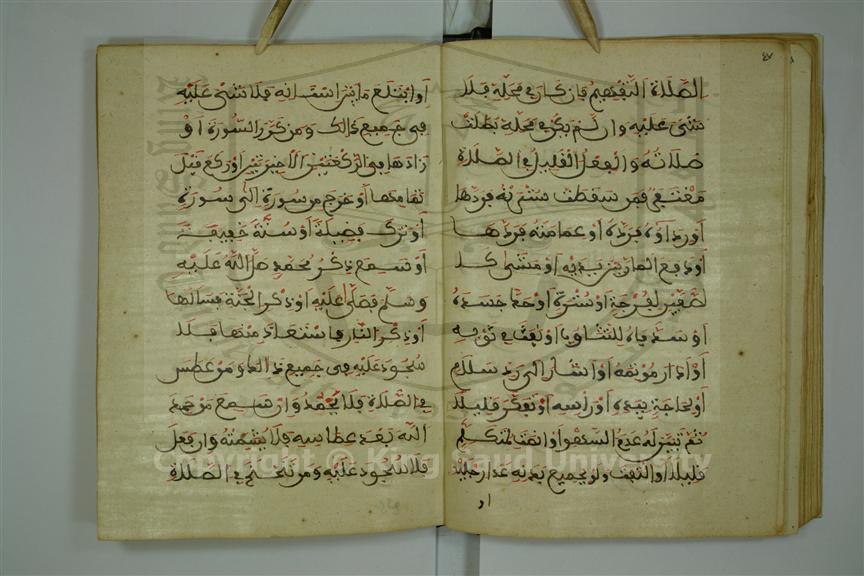 الصلاة التفهيم فإن كان في محله فلا
شيء عليه وإن لم يكن في محله بطلت
صلاته والفعل القليل في الصلاة
مغتفر فمن سقطت سترته فردها
أو رداؤه فرده أو عمامته فردها
أو دفع المار بين يديه أو مشى كا
لصفين لفرجة أو سترة أو حك جسده
أو سد فاه للتثاوب أو نفث في ثوبه
أو أدار مؤتمه أو أشار إلى رد سلام
أو لحاجة بيده أو رأسه أو تفكر قليلا
ثم تبين له عدم السهو أو أنصت لمتكلم
قليلا أو التفت ولو بجميع بدنه عدا رجليه
أو ابتلع ما بين أسنانه فلا شيء عليه
في جميع ذلك ومن كرر السورة أو
زادها في الركعتين الأخيرتين أو ركع قبل
تمامها أو خرج من سورة إلى سورة
أو ترك فضيلة أو سنة خفيفة
أو سمع ذكر محمد صل الله عليه
وسلم فصلى عليه أو ذكر الجنة فسألها
أو ذكر النار فاستعاذ منها فلا
سجود عليه في جميع ذلك ومن عطس
في الصلاة فلا يحمد وإن سمع من حمد
الله بعد عطاسه فلا يشمته وإن فعل
فلا سجود عليه ومن تنحنح في الصلاة
Copyright © King Saud University